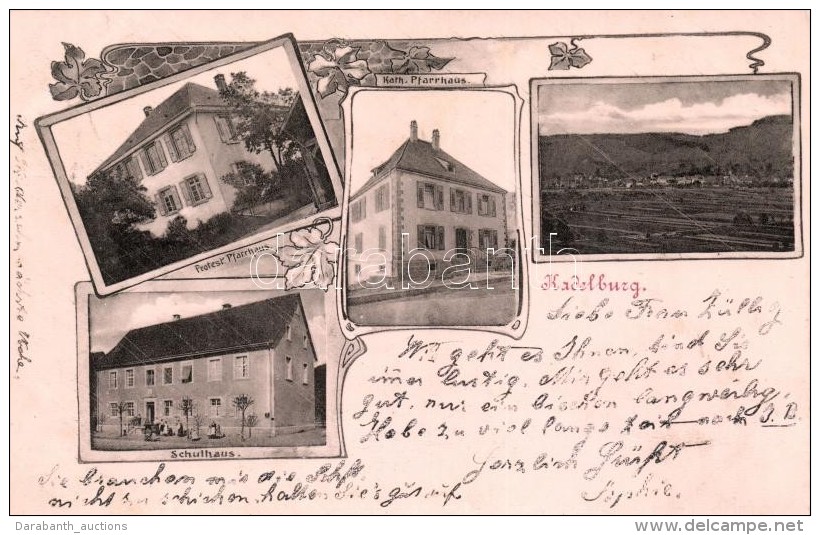 Kath. Pfarrhaus.
Protest. Pfarrhaus.
darabanth
Kadelburg.
Schulhaus.
Liebe Frau Züllig
Wie geht es Ihnen, sind Sie
imer lustig. Mir geht es sehr
gut, nur ein bischen langweilig.
Habe zu viel lange Zeit nach
Herzlich Grüßt
Sophie.
Sie brauchen mir die
nicht zu schicken, halten Sie's gut auf
nächste Woche.
Darabanth_auctions
www.delcampe.net